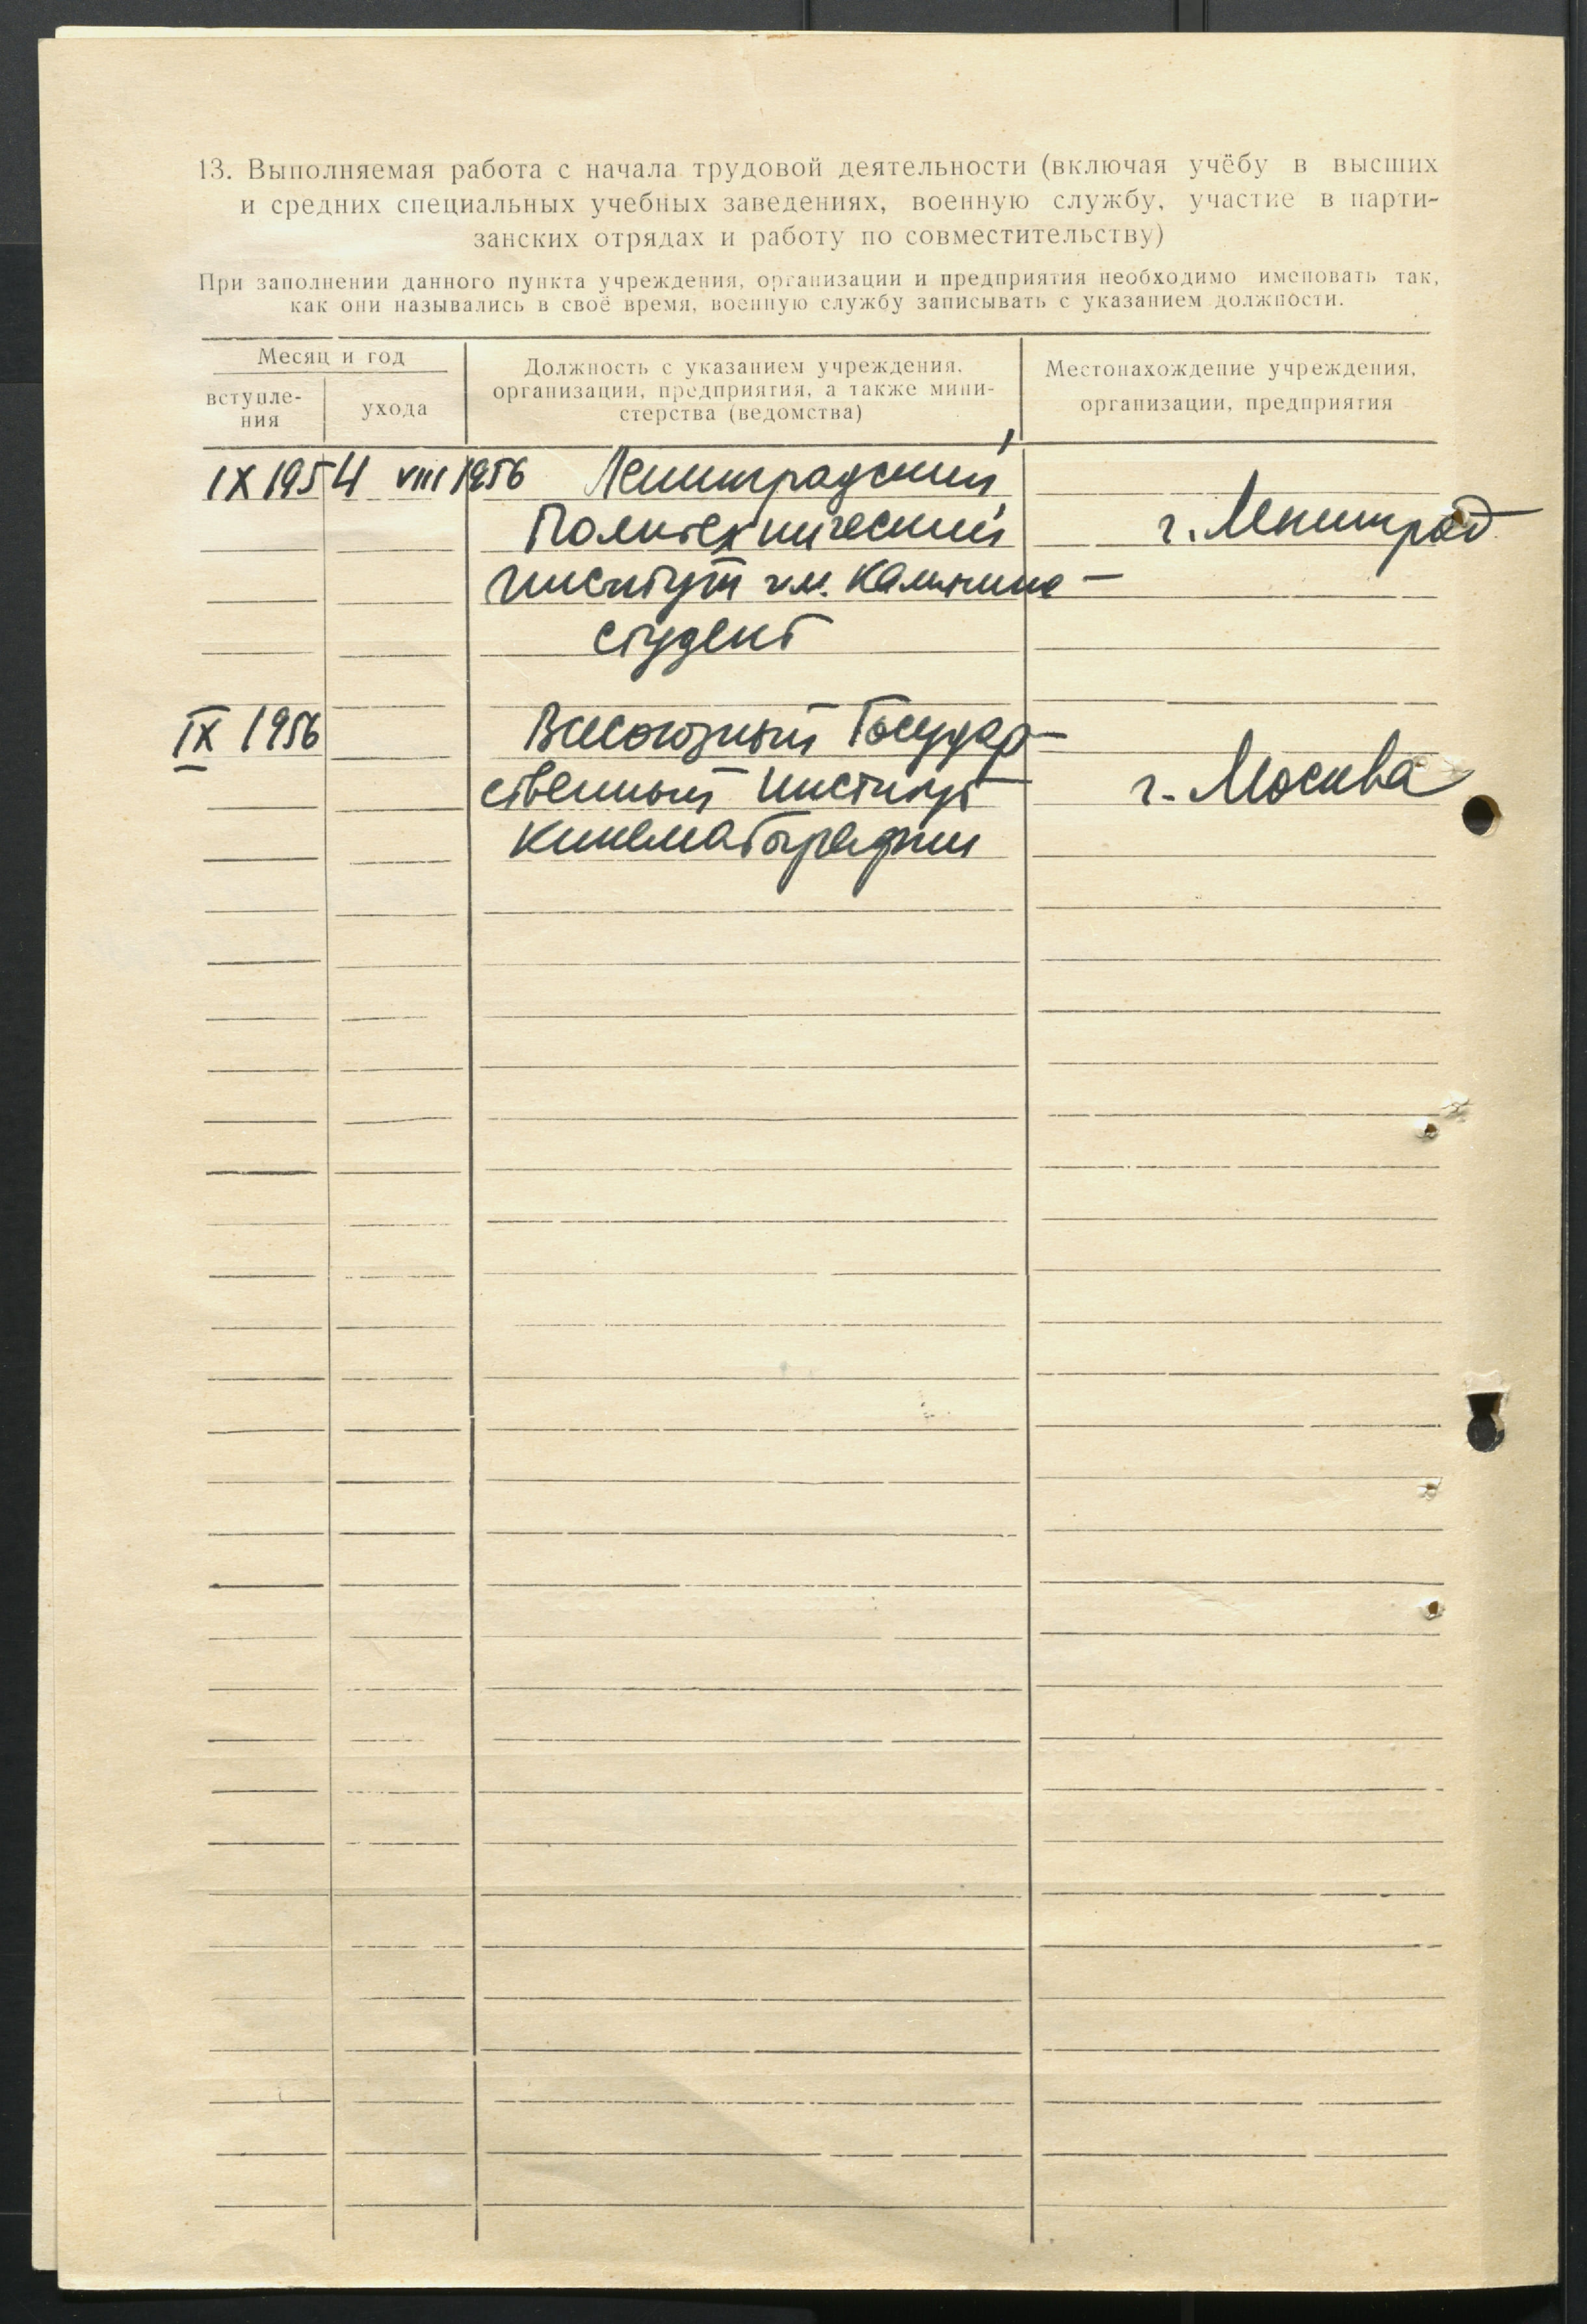 13. Выполняемая работа с начала трудовой деятельности (включая учёбу в высших
и средних специальных учебных заведениях, военную службу, участие в парти-
занских отрядах и работу по совместительству)
При заполнении данного пункта учреждения, организации и предприятия необходимо именовать так,
как они назывались в своё время, военную службу записывать с указанием должности.
Месяц и год
вступле-
ния
ухода
Должность с указанием учреждения,
организации, предприятия, а также мини-
стерства (ведомства)
Местонахождение учреждения,
организации, предприятия
IX 1954 VIII 1956 Ленинградский
Политехнический г. Ленинград
институт им. Калинина —
студент
IX 1956 Всесоюзный Государ-
ственный Институт г. Москва
Кинематографии